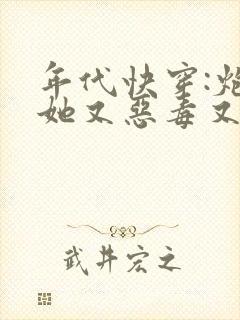 年代快穿:炮
她又恶毒又
武井宏之